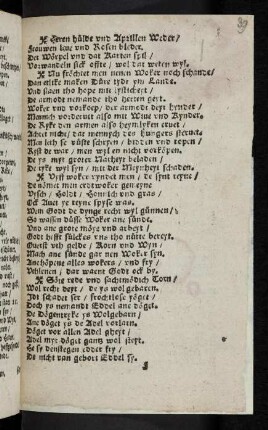 39
Heren hülde vnd Aprillen Weder /
Frouwen leue vnd Rosen bleder.
Der Wörpel vnd dat Karten spil /
Vorwandeln sick offte / wol dat weten wyl.
Nu fröchtet men nenen Woker noch schande /
Dan etlike maken Düre tydt yn Lande.
Vnd slaen tho hope mit
De armodt nemande tho herten geyt.
Woker vnd vorkoep / der armodt deyt hynder /
Mennich vorderuet also mit Wiue vnd Kynder.
De Ryke den armen also heymlyken eruet /
Achtet nicht / dat mennych des hungers steruet.
Men leth se vüste schryen / bidden vnd ropen /
Lest de war / men wyl en nicht vorköpen.
De ys myt groter Natheyt beladen /
De ryke wyl syn / mit der Mynschen schaden.
Vyff woker vyndet men / de synt reyne /
De nömet men erdtwoker gen eyne
Vysch / Holdt / Honnich vnd gras /
Ock Auet ye reyne spyse was.
Wem Godt de dynge recht wyl günnen /
So wassen düsse Woker ane sünde.
Vnd ane grote möye vnd arbeyt /
Godt hefft sückes vns tho nütte bereyt.
Querst vth gelde / Korn vnd Wyn /
Mach ane sünde gar nen Woker syn.
Anehöpene alles wokers / vnd fry /
Vehlenen / dar waent Godt ock by.
Söte rede vnd sachtmödich Torn /
Wol recht deyt / de ys wol gebaren.
Idt schadet ser / frochtlose yöget /
Noch ys nemandt Eddel ane döget.
De Dögentryke ys Wolgebarn /
Ane döget ys de Adel vorlarn.
Döget vor allen Adel gheyt /
Adel myt döget gantz wol steyt.
He sy denstegen edder fry /
De nicht van gebort Eddel sy.